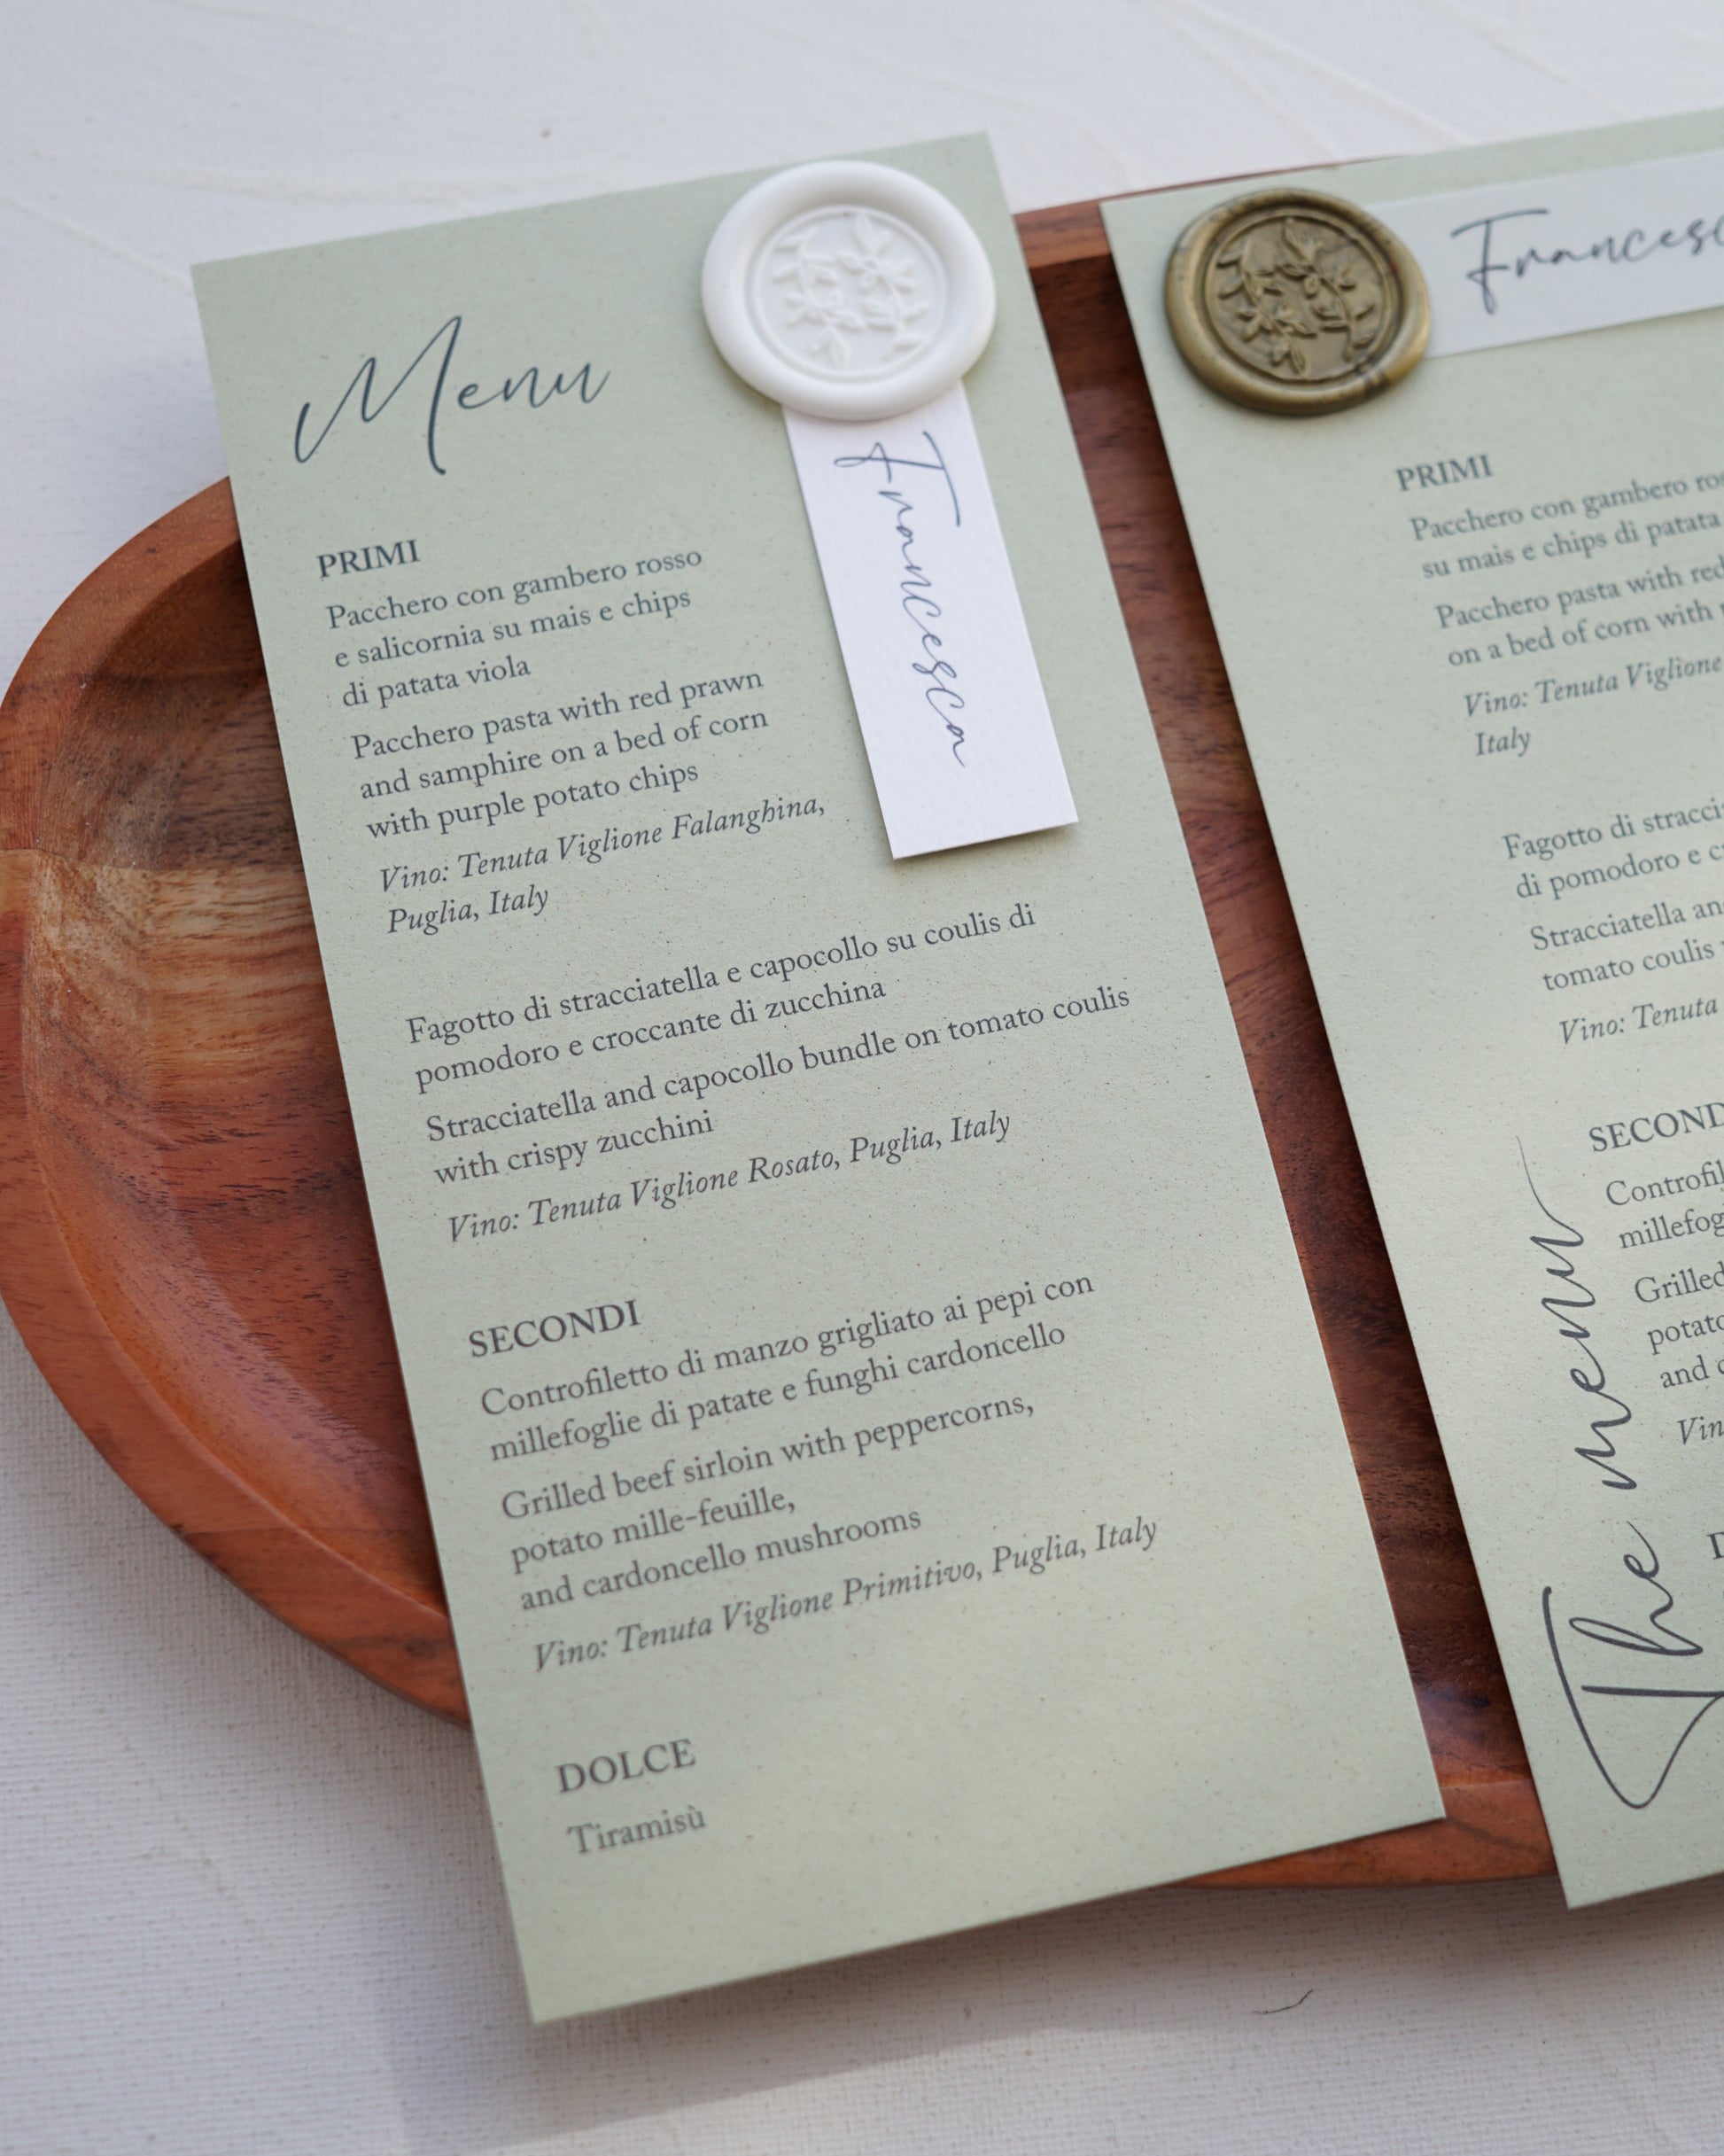 Menu
Francesca
PRIMI
Pacchero con gambero rosso
e salicornia su mais e chips
di patata viola
Pacchero pasta with red prawn
and samphire on a bed of corn
with purple potato chips
Vino: Tenuta Viglione Falanghina,
Puglia, Italy
Fagotto di stracciatella e capocollo su coulis di
pomodoro e croccante di zucchina
Stracciatella and capocollo bundle on tomato coulis
with crispy zucchini
Vino: Tenuta Viglione Rosato, Puglia, Italy
SECONDI
Controfiletto di manzo grigliato ai pepi con
millefoglie di patate e funghi cardoncello
Grilled beef sirloin with peppercorns,
potato mille-feuille,
and cardoncello mushrooms
Vino: Tenuta Viglione Primitivo, Puglia, Italy
DOLCE
Tiramisù
Francesc
PRIMI
Pacchero con gambero
su mais e chips di patata
Pacchero pasta with red
on a bed of corn with
Vino: Tenuta Viglione
Italy
Fagotto di
di pomodoro e
Stracciatella
tomato coulis
Vino: Tenuta
SECOND
Grilled
and
The menu